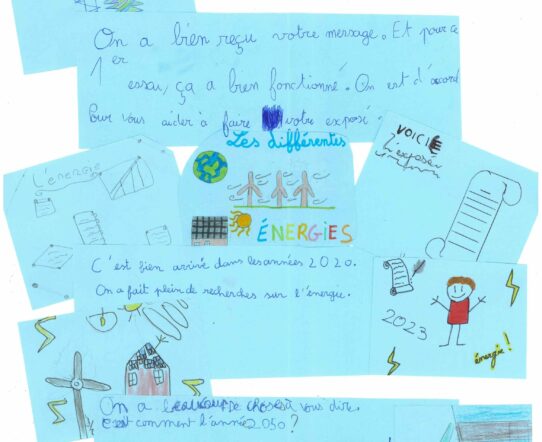 On a bien reçu votre message. Et pour ce
1er
essai, ça a bien fonctionné. On est d'accord
Pour vous aider à faire votre exposé.
Les différentes
ÉNERGIES
L'énergie
VOICIE
l'exposé
C'est bien arrivé dans les années 2020.
On a fait plein de recherches sur l'énergie.
2023
énergie!
On a beaucoup de choses à vous dire.
c'est comment l'année 2050?